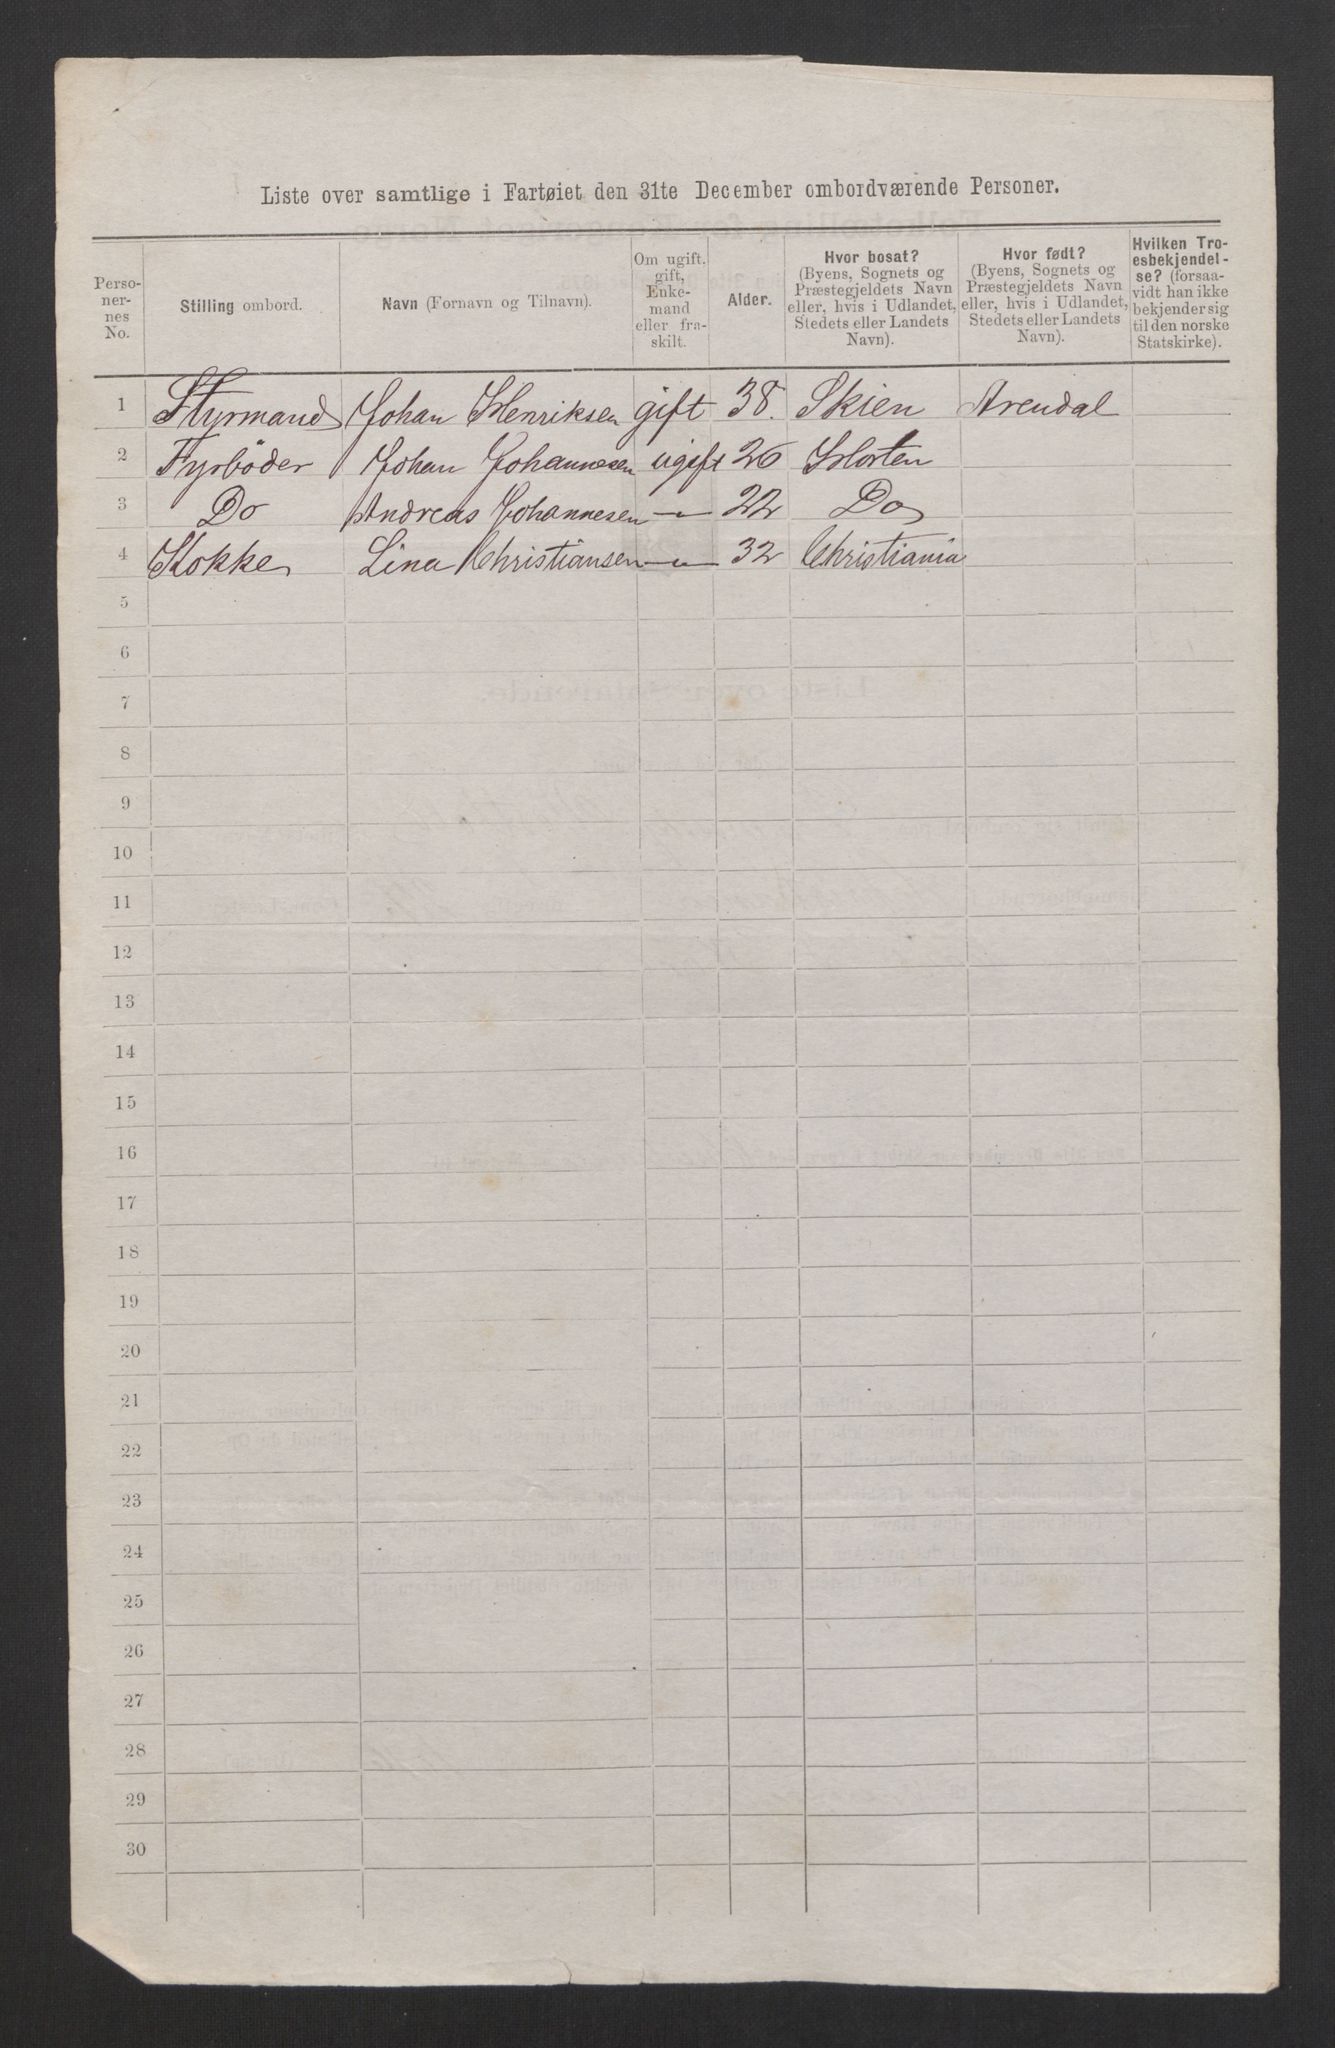 Liste over samtlige i Fartøiet den 31te December ombordværende Personer.
Perso-
ner-
nes
No.
Stilling ombord.
Navn (Fornavn og Tilnavn).
Om ugift,
gift,
Enke-
mand
eller fra-
skilt.
Alder.
Hvor bosat?
(Byens, Sognets og
Præstegjeldets Navn
eller, hvis i Udlandet,
Stedets eller Landets
Navn).
Hvor født?
(Byens, Sognets og
Præstegjeldets Navn
eller, hvis i Udlandet,
Stedets eller Landets
Navn).
Hvilken Tro-
esbekjendel-
se? (forsaa-
vidt han ikke
bekjender sig
til den norske
Statskirke).
1 Styrmand Johan Henriksen gift 38. Skien Arendal
2 Fyrböder Johan Johannesen ugift 26 Horten
3 Do Andreas Johannesen -"- 22 Do
4 Kokke Lina Christiansen -"- 32 Christiania
5
6
7
8
9
10
11
12
13
14
15
16
17
18
19
20
21
22
23
24
25
26
27
28
29
30